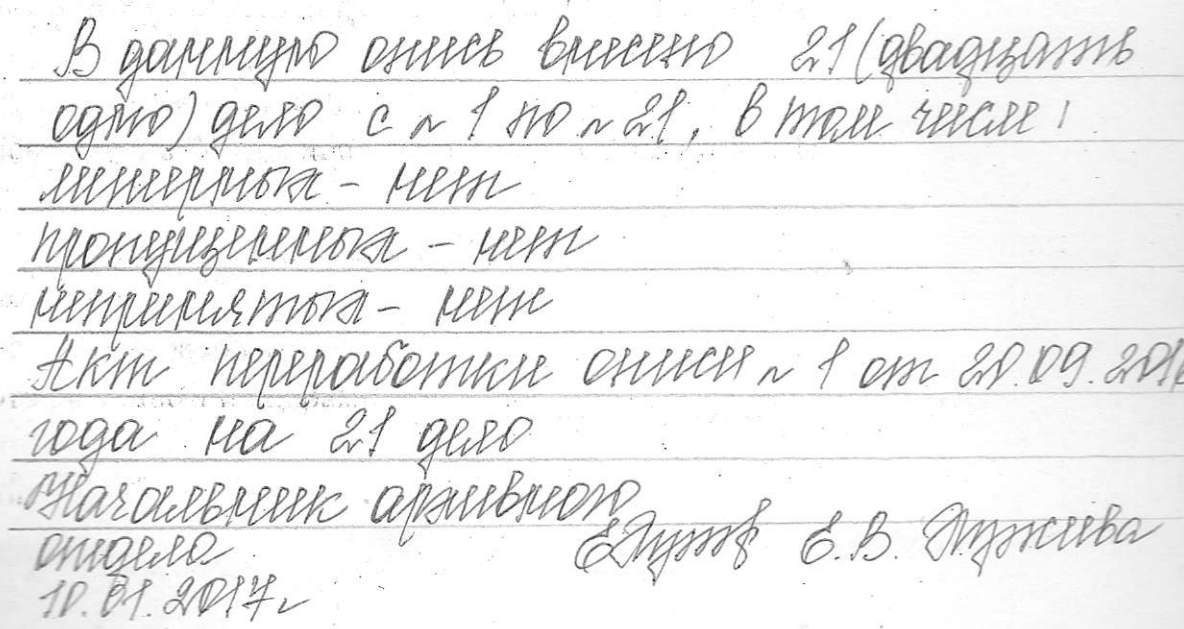 В данную опись внесено 21 (двадцать
одно) дело с № 1 по № 21, в том числе:
литерных - нет
пропущенных - нет
непринятых - нет
Акт переработки описи № 1 от 20.09.2016
года на 21 дело
Начальник архивного
отдела Е.В.
10.01.2017г